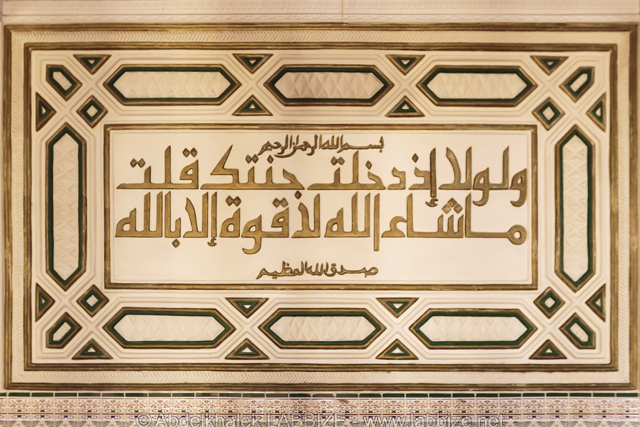 بسم الله الرحمن الرحيم
ولولا إذ دخلت جنتك قلت
ما شاء الله لا قوة إلا بالله
صدق الله العظيم
© Abdelkhalek LABBIZE - www.labbize.net